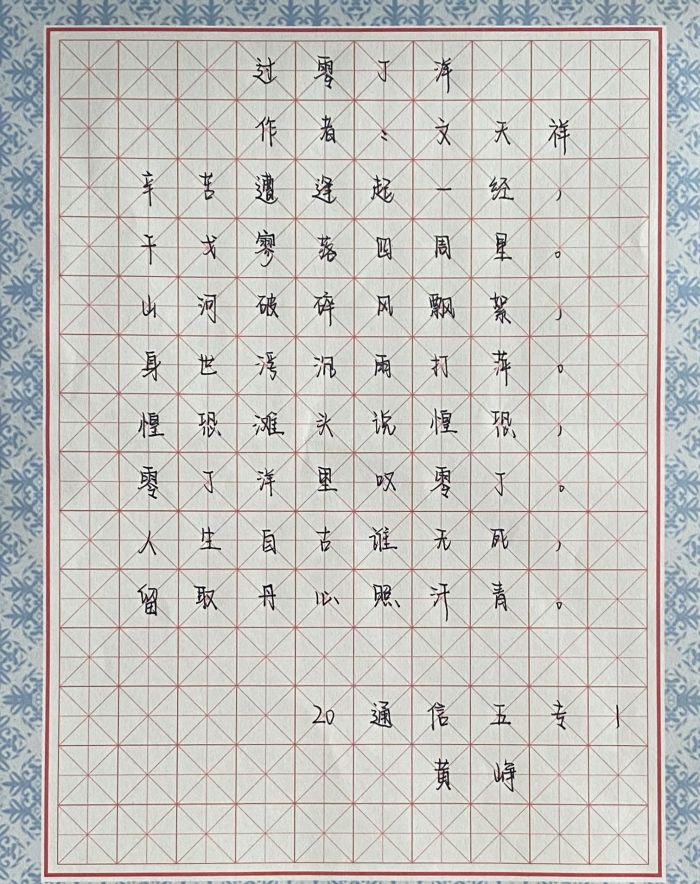 过零丁洋
作者:文天祥
辛苦遭逢起一经,
干戈寥落四周星。
山河破碎风飘絮,
身世浮沉雨打萍。
惶恐滩头说惶恐,
零丁洋里叹零丁。
人生自古谁无死,
留取丹心照汗青。
20通信五专1
黄峥